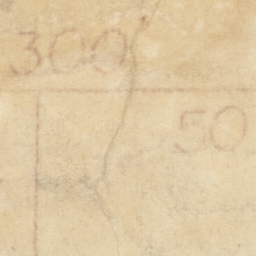 300
50